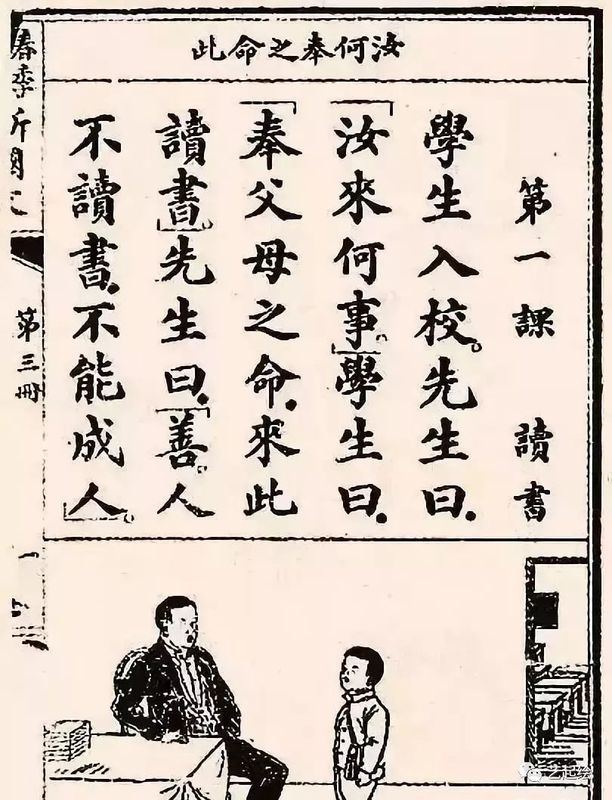 汝何奉之命此
第一課 讀書
學生入校。先生曰.
「汝來何事.」學生曰.
「奉父母之命.來此
讀書.」先生曰.「善。人
不讀書.不能成人。」
春季新國文
第三冊
一